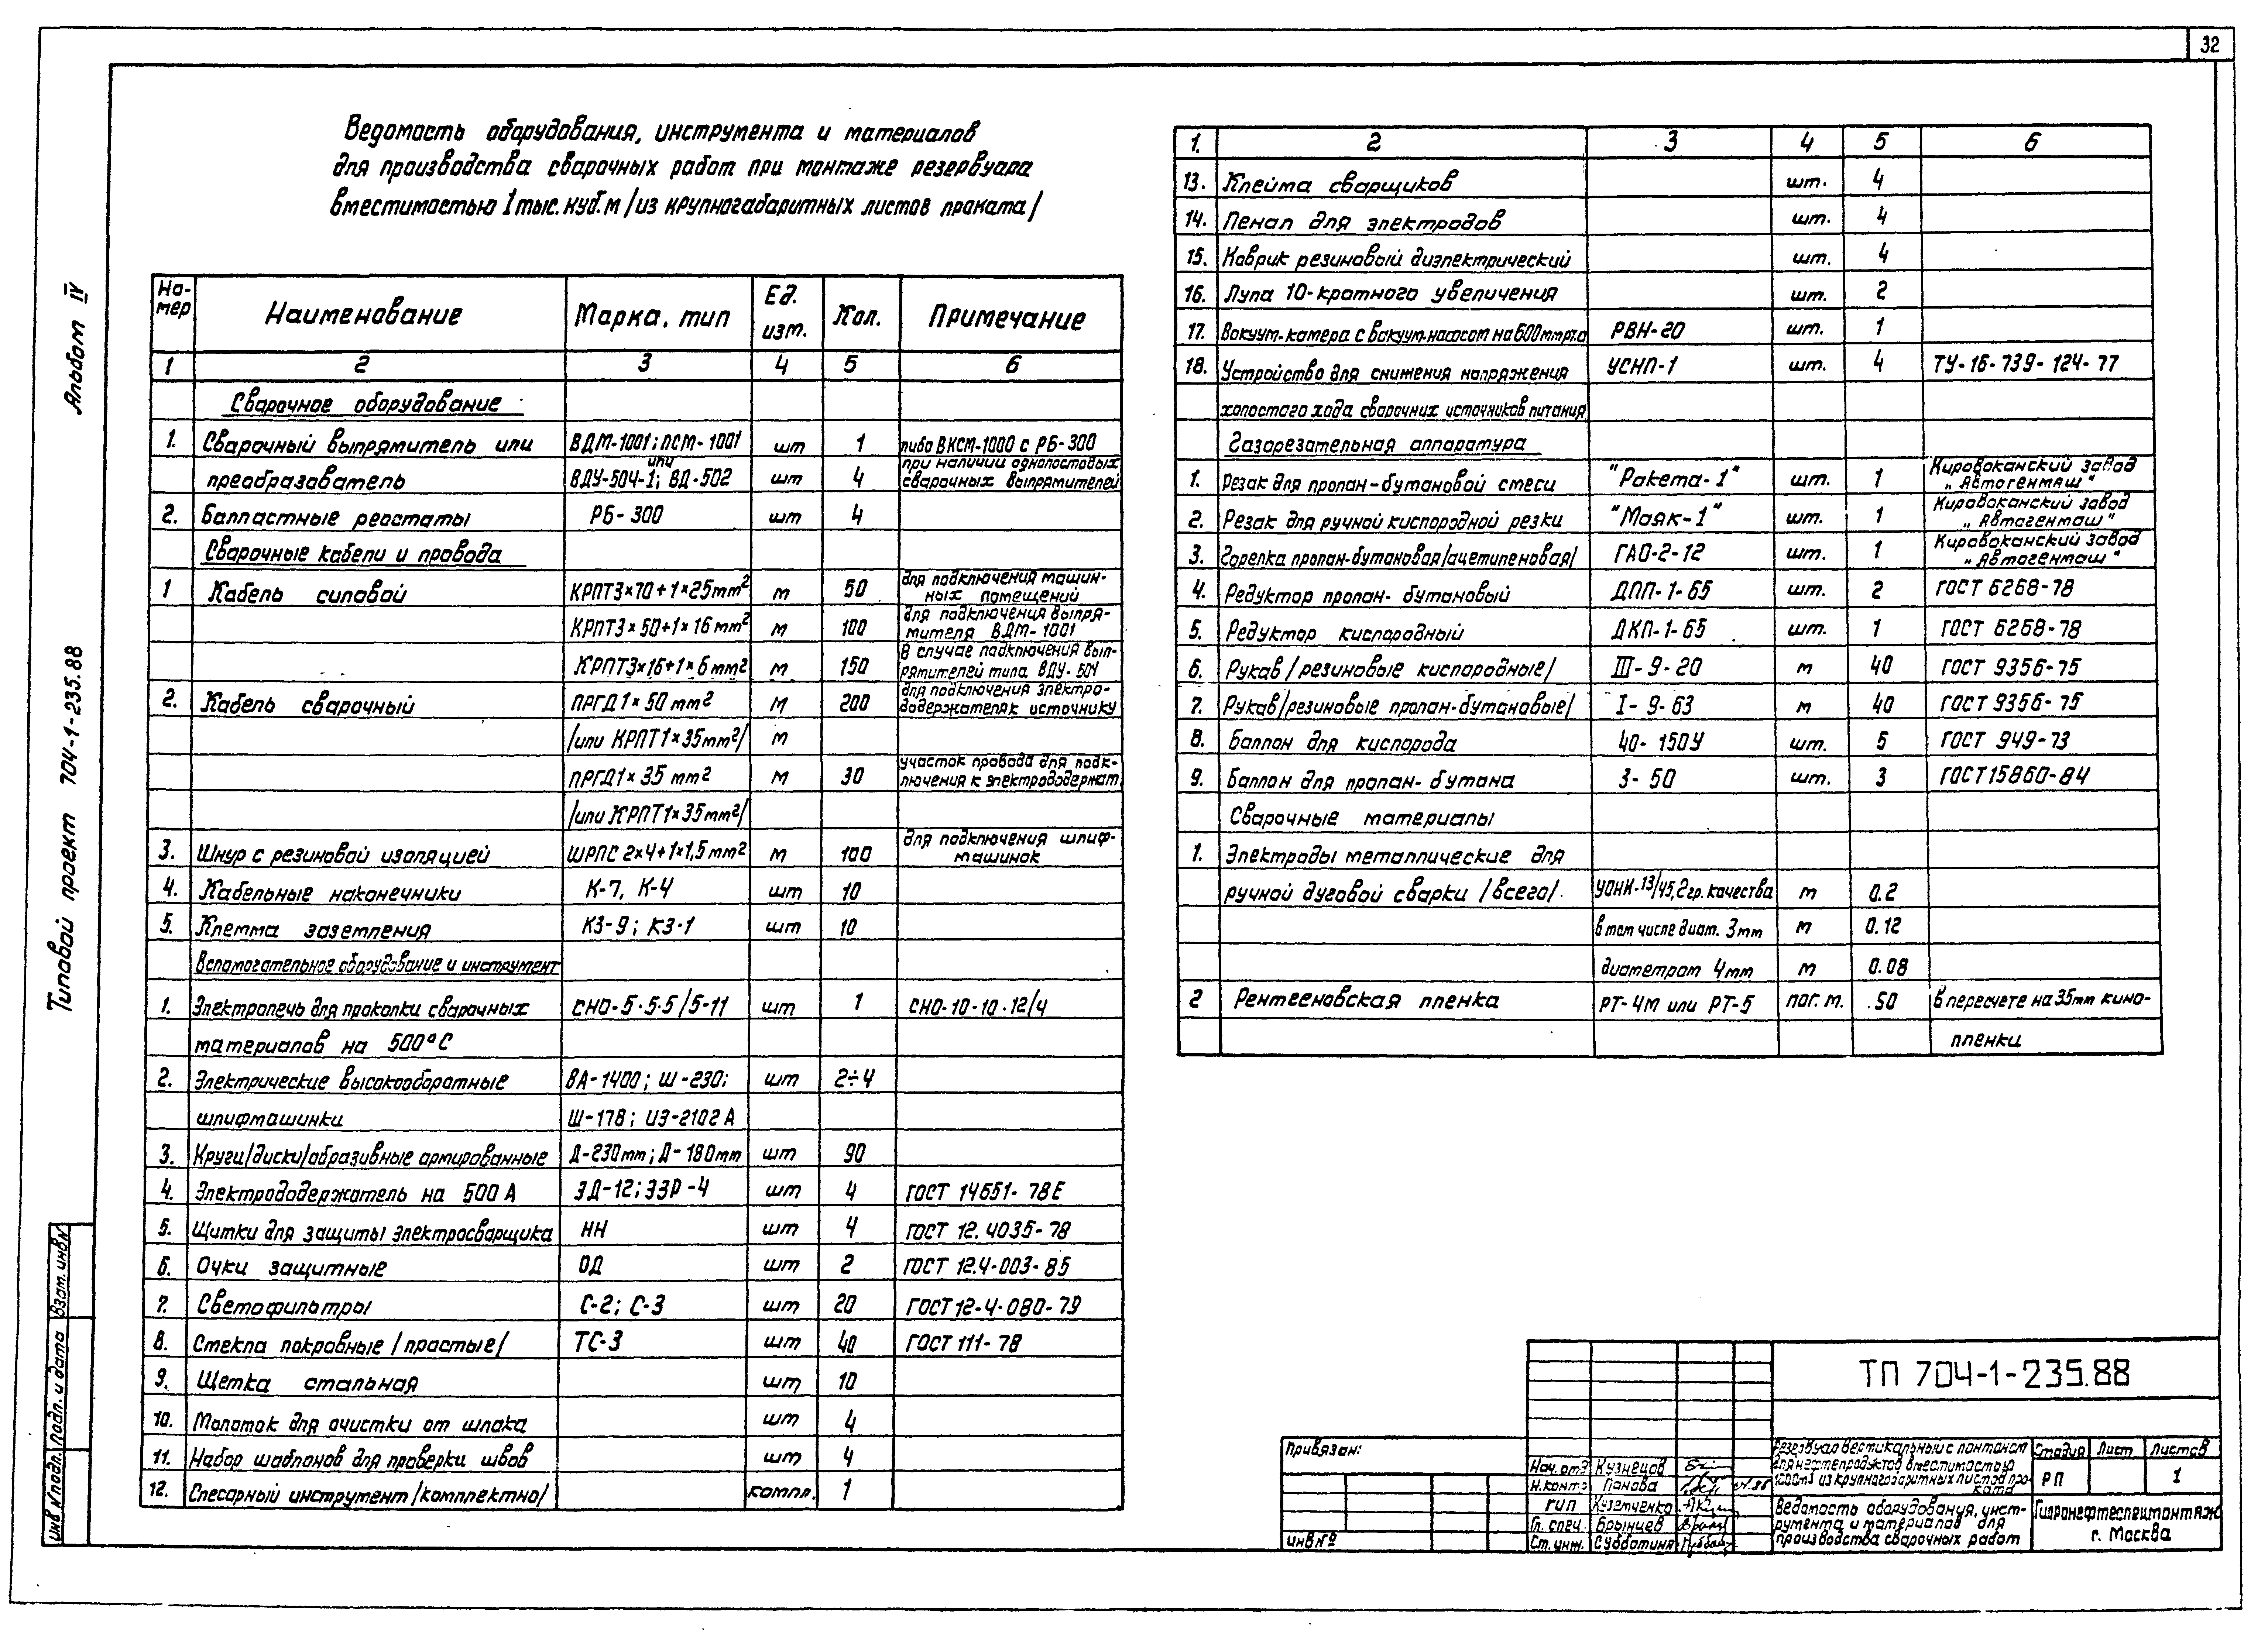 32
Ведомость оборудования, инструмента и материалов
для производства сварочных работ при монтаже резервуара
вместимостью 1 тыс. куб. м /из крупногабаритных листов проката/
Альбом IV
Типовой проект 704-1-235.88
Но-мер Наименование Марка, тип Ед. изм. Кол. Примечание
1 2 3 4 5 6
Сварочное оборудование
1. Сварочный выпрямитель или ВДМ-1001; ПСМ-1001 шт 1 либо ВКСМ-1000 с РБ-300
или при наличии однопостовых
преобразователь ВДУ-504-1; ВД-502 шт 4 сварочных выпрямителей
2. Балластные реостаты РБ-300 шт 4
Сварочные кабели и провода
1 Кабель силовой КРПТ3×70+1×25мм² м 50 для подключения машин-
ных помещений
КРПТ3×50+1×16мм² м 100 для подключения выпря-
мителя ВДМ-1001
КРПТ3×16+1×6мм² м 150 в случае подключения вып-
рямителей типа ВДУ-504
2. Кабель сварочный ПРГД1×50мм² м 200 для подключения электро-
додержателя к источнику
/или КРПТ1×35мм²/ м
ПРГД1×35мм² м 30 участок провода для подк-
лючения к электрододержат.
/или КРПТ1×35мм²/
3. Шнур с резиновой изоляцией ШРПС 2×4+1×1,5мм² м 100 для подключения шлиф-
машинок
4. Кабельные наконечники К-7, К-4 шт 10
5. Клемма заземления КЗ-9; КЗ-1 шт 10
Вспомогательное оборудование и инструмент
1. Электропечь для прокалки сварочных СНО-5·5·5/5-11 шт 1 СНО-10-10·12/4
материалов на 500°С
2. Электрические высокооборотные ВА-1400; Ш-230; шт 2÷4
шлифмашинки Ш-178; ИЭ-2102А
3. Круги/диски/абразивные армированные Д-230мм; Д-180мм шт 90
4. Электрододержатель на 500А ЭД-12; ЭЗР-4 шт 4 ГОСТ 14651-78Е
5. Щитки для защиты электросварщика НН шт 4 ГОСТ 12.4035-78
6. Очки защитные ОД шт 2 ГОСТ 12.4-003-85
7. Светофильтры С-2; С-3 шт 20 ГОСТ 12-4-080-79
8. Стекла покровные /простые/ ТС-3 шт 40 ГОСТ 111-78
9. Щетка стальная шт 10
10. Молоток для очистки от шлака шт 4
11. Набор шаблонов для проверки швов шт 4
12. Слесарный инструмент /комплектно/ компл. 1
1. 2 3 4 5 6
13. Клейма сварщиков шт. 4
14. Пенал для электродов шт. 4
15. Коврик резиновый диэлектрический шт. 4
16. Лупа 10-кратного увеличения шт. 2
17. Вакуум-камера с вакуум-насосом на 600мм рт.с РВН-20 шт. 1
18. Устройство для снижения напряжения УСНП-1 шт. 4 ТУ-16-739-124-77
холостого хода сварочних источников питания
Газорезательная аппаратура
1. Резак для пропан-бутановой смеси "Ракета-1" шт. 1 Кировоканский завод
„Автогенмаш"
2. Резак для ручной кислородной резки "Маяк-1" шт. 1 Кировоканский завод
„Автогенмаш"
3. Горелка пропан-бутановая/ацетиленовая/ ГАО-2-12 шт. 1 Кировоканский завод
„Автогенмаш"
4. Редуктор пропан-бутановый ДПП-1-65 шт. 2 ГОСТ 6268-78
5. Редуктор кислородный ДКП-1-65 шт. 1 ГОСТ 6268-78
6. Рукав /резиновые кислородные/ III-9-20 м 40 ГОСТ 9356-75
7. Рукав/резиновые пропан-бутановые/ I-9-63 м 40 ГОСТ 9356-75
8. Баллон для кислорода 40-150У шт. 5 ГОСТ 949-73
9. Баллон для пропан-бутана 3-50 шт. 3 ГОСТ 15860-84
Сварочные материалы
1. Электроды металлические для
ручной дуговой сварки /всего/. УОНИ-13/45, 2гр. качества м 0.2
в том числе диам. 3мм м 0.12
диаметром 4мм м 0.08
2 Рентгеновская пленка РТ-4М или РТ-5 пог. м. 50 в пересчете на 35мм кино-
пленки
ТП 704-1-235.88
Привязан:
Инв №
Нач. отд Кузнецов
Н.контр Панова
ГИП Куземченко
Гл. спец. Брынцев
Ст. инж. Субботина
Резервуар вертикальный с понтоном
для нефтепродуктов вместимостью
1000м³ из крупногабаритных листов про-
ката
Стадия Лист Листов
РП 1
Ведомость оборудования, инст-
румента и материалов для
производства сварочных работ
Гипронефтеспецмонтаж
г. Москва
Инв № подл. Подп. и дата Взам. инв №